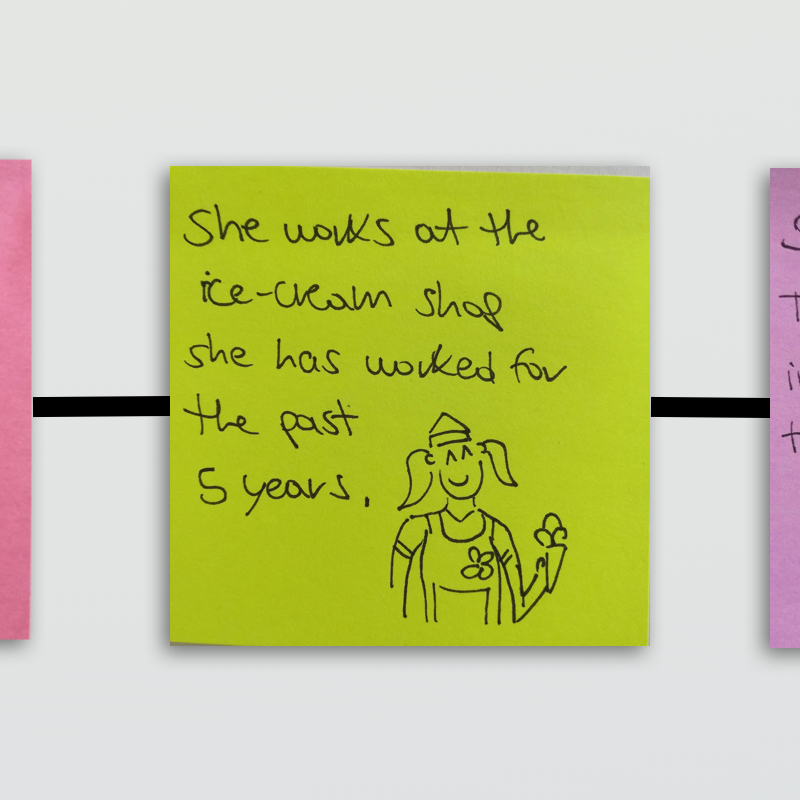 She works at the
ice-cream shop
she has worked for
the past
5 years.